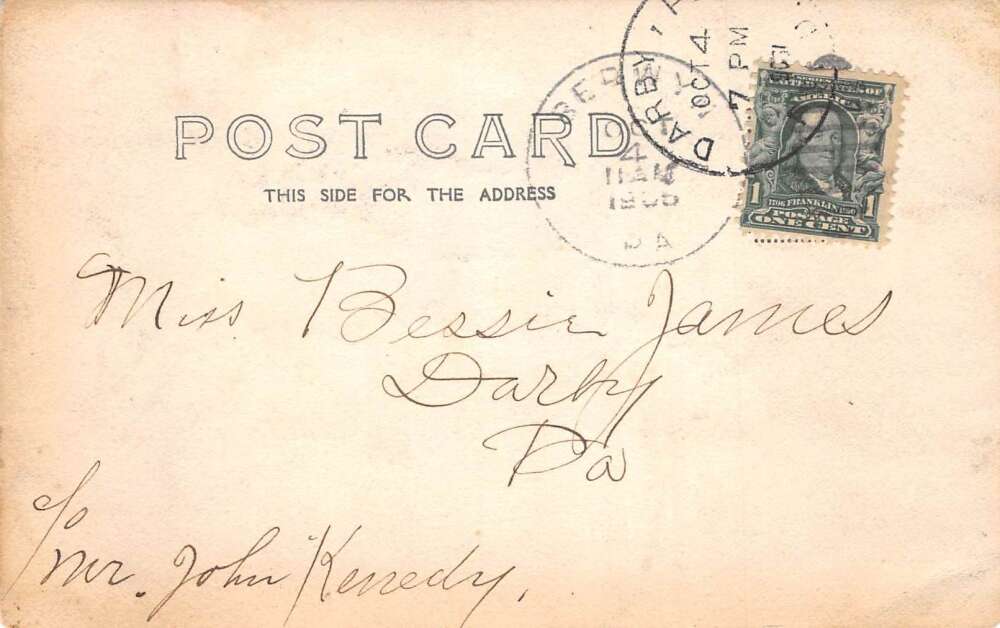 POST CARD
THIS SIDE FOR THE ADDRESS
DARBY
OCT 4
7 PM
4
11 AM
PA
OF
AMERICA
1 1706 FRANKLIN 1790 1
POSTAGE
ONE CENT
Miss Bessie James
Darby
Pa
c/o
Mr. John Kenedy.